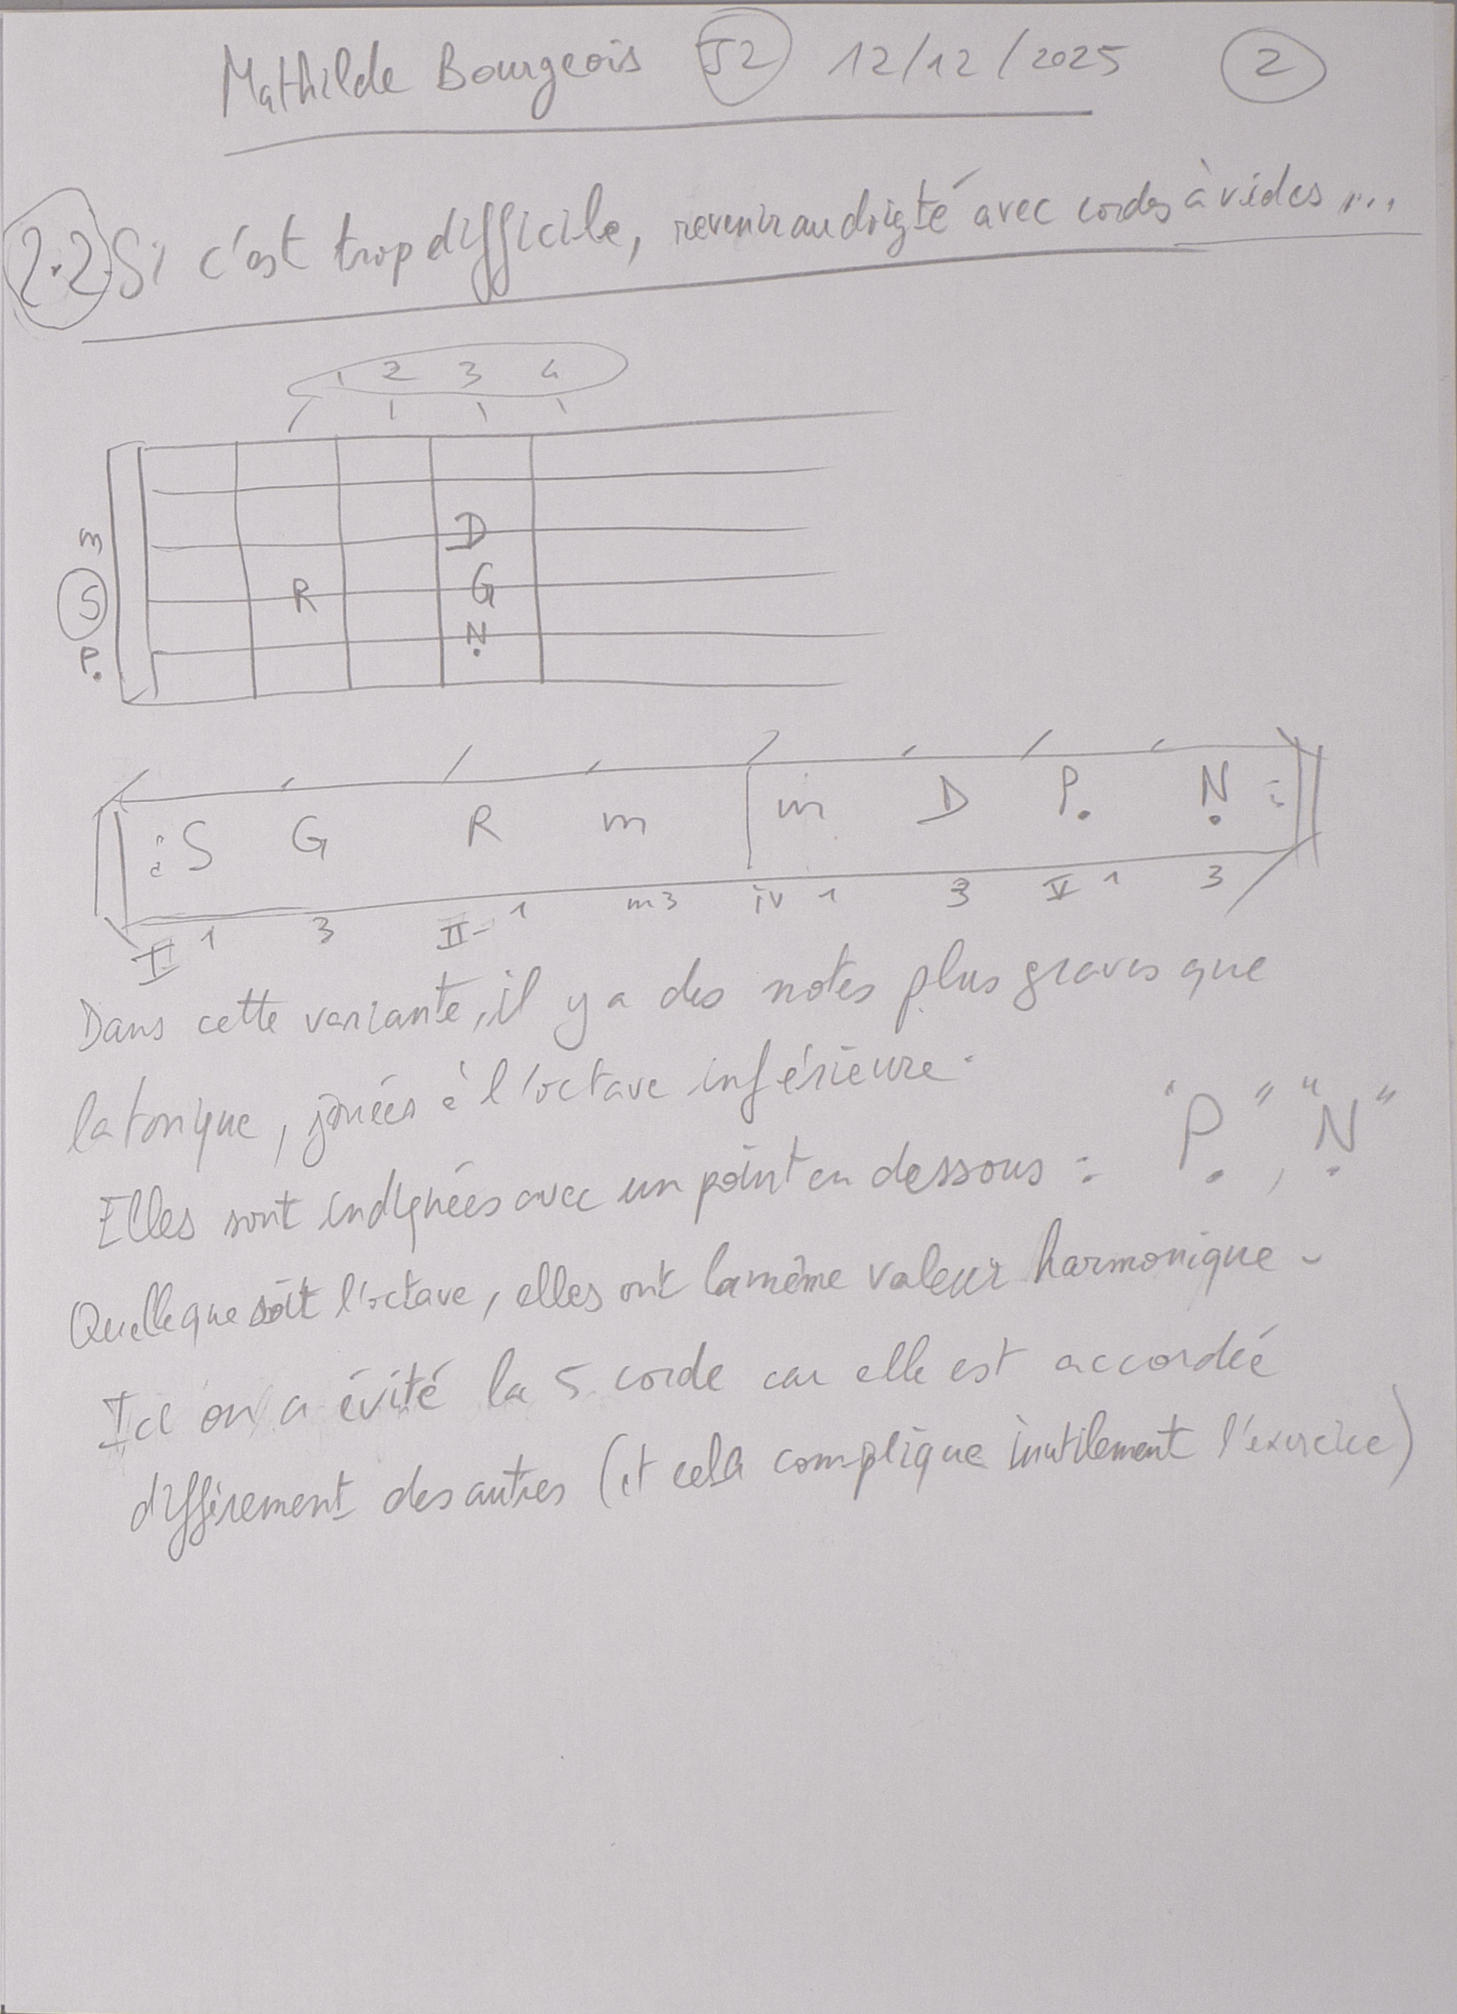 Mathilde Bourgeois S2 12/12/2025 2
2.2 Si c'est trop difficile, revenir au doigté avec cordes à vides ...
1 2 3 4
m
S
P.
D
R G
Ṇ
: S G R m | m D P. Ṇ :
I 1 3 II- 1 m3 iv 1 3 V 1 3
Dans cette variante, il y a des notes plus graves que
la tonique, jouées à l'octave inférieure.
Elles sont indiquées avec un point en dessous : "P.", "Ṇ"
Quelle que soit l'octave, elles ont la même valeur harmonique.
Ici on a évité la 5 corde car elle est accordée
différement des autres (et cela complique inutilement l'exercice)